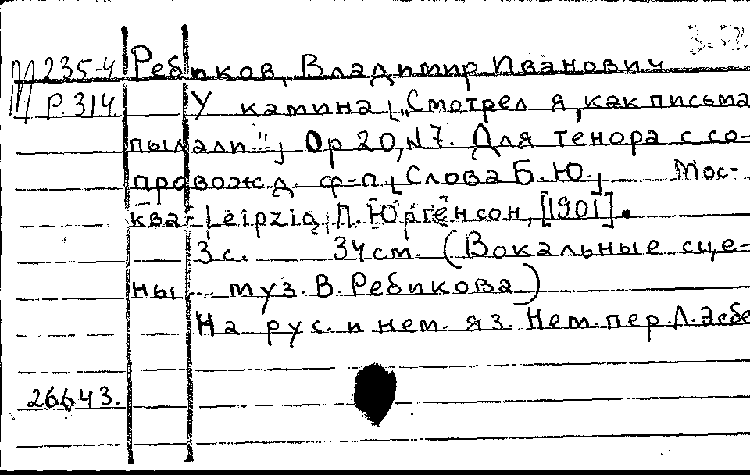 3.52
М 235-4 Ребиков, Владимир Иванович
Р.314 У камина [„Смотрел я, как письма
пылали"], Op 20, №7. Для тенора с со-
провожд. ф-п. [Слова Б.Ю.] Мос-
ква-Leipzig, П. Юргенсон, [1901].
3с. 34см. (Вокальные сце-
ны... муз. В. Ребикова)
На рус. и нем. яз. Нем. пер. Л. Эсбе
26643.